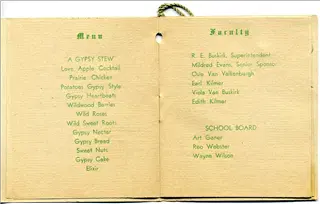 Menu
A GYPSY STEW
Love Apple Cocktail
Prairie Chicken
Potatoes Gypsy Style
Gypsy Heartbeats
Wildwood Berries
Wild Roses
Wild Sweet Roots
Gypsy Nectar
Gypsy Bread
Sweet Nuts
Gypsy Cake
Elixir
Faculty
R. E. Buskirk, Superintendent
Mildred Evans, Senior Sponsor
Okle Van Valkenburgh
Earl Kilmer
Viola Van Buskirk
Edith Kilmer
SCHOOL BOARD
Art Garner
Reo Webster
Wayne Wilson